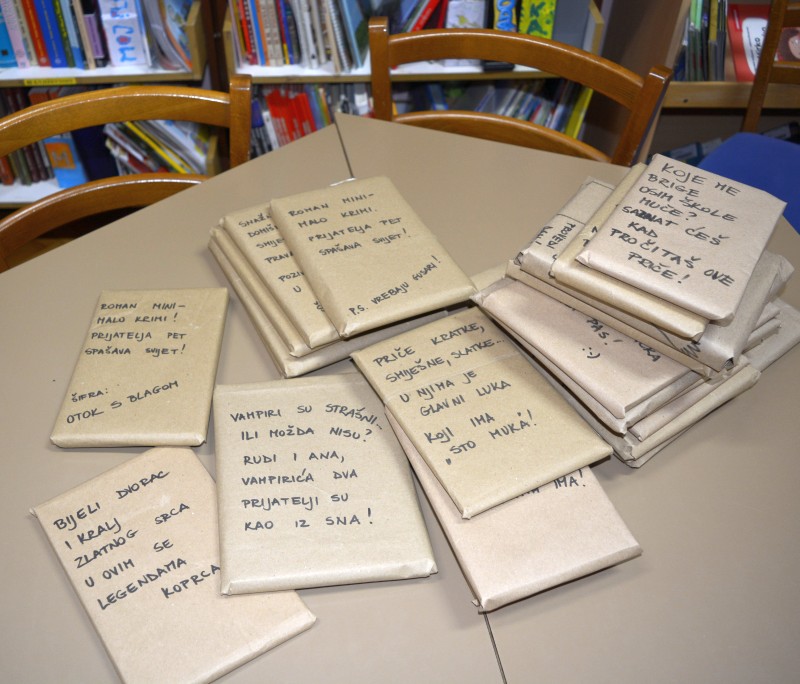 ROMAN MINI-
MALO KRIMI!
PRIJATELJA PET
SPAŠAVA SVIJET!
ŠIFRA:
OTOK S BLAGOM
ROMAN MINI-
MALO KRIMI.
PRIJATELJA PET
SPAŠAVA SVIJET!
P.S. VREBAJU GUSARI!
KOJE ME
BRIGE
OSIM ŠKOLE
MUČE?
SAZNAT ĆEŠ
KAD
PROČITAŠ OVE
PRIČE!
PAS!
PRIČE KRATKE,
SMIJEŠNE, SLATKE...
U NJIMA JE
GLAVNI LUKA
KOJI IMA
„STO MUKA"!
IMA!
VAMPIRI SU STRAŠNI-
ILI MOŽDA NISU?
RUDI I ANA,
VAMPIRIĆA DVA
PRIJATELJI SU
KAO IZ SNA!
BIJELI DVORAC
I KRALJ
ZLATNOG SRCA
U OVIM SE
LEGENDAMA
KOPRCA